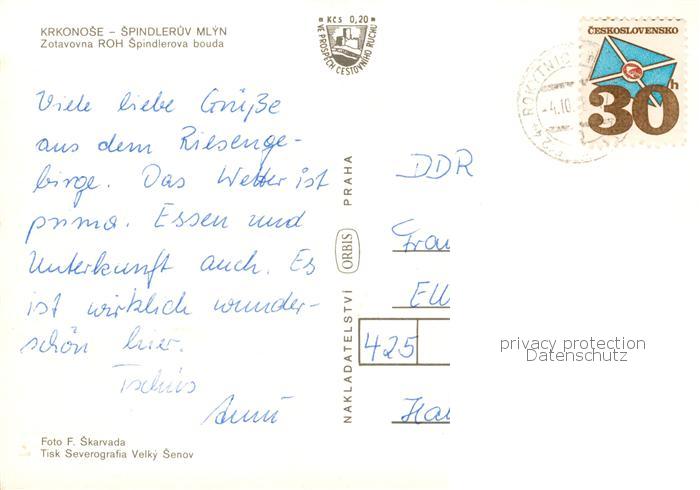 KRKONOŠE – ŠPINDLERŮV MLÝN
Zotavovna ROH Špindlerova bouda
Kčs 0,20
VE PROSPĚCH CESTOVNÍHO RUCHU
ČESKOSLOVENSKO
30h
-4.10.
Viele liebe Grüße
aus dem Riesenge-
birge. Das Wetter ist
prima. Essen und
Unterkunft auch. Es
ist wirklich wunder-
schön hier.
Tschüs
NAKLADATELSTVÍ ORBIS PRAHA
DDR
Frau
425
privacy protection
Datenschutz
Foto F. Škarvada
Tisk Severografia Velký Šenov